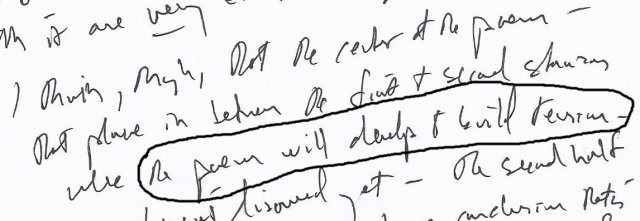 it are very
I think, though, that the center of the poem –
that place in between the first & second stanzas
where the poem will develop & build tension –
discovered yet – the second half
conclusion that's